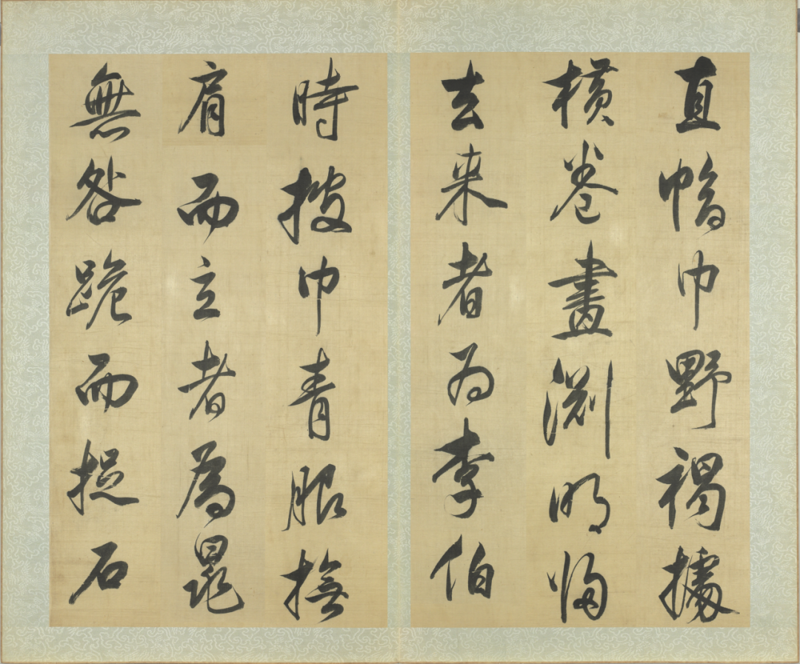 直幍巾野褐據
橫卷畫淵明歸
去来者為李伯
時披巾青服撫
肩而立者為晁
無咎跪而捉石